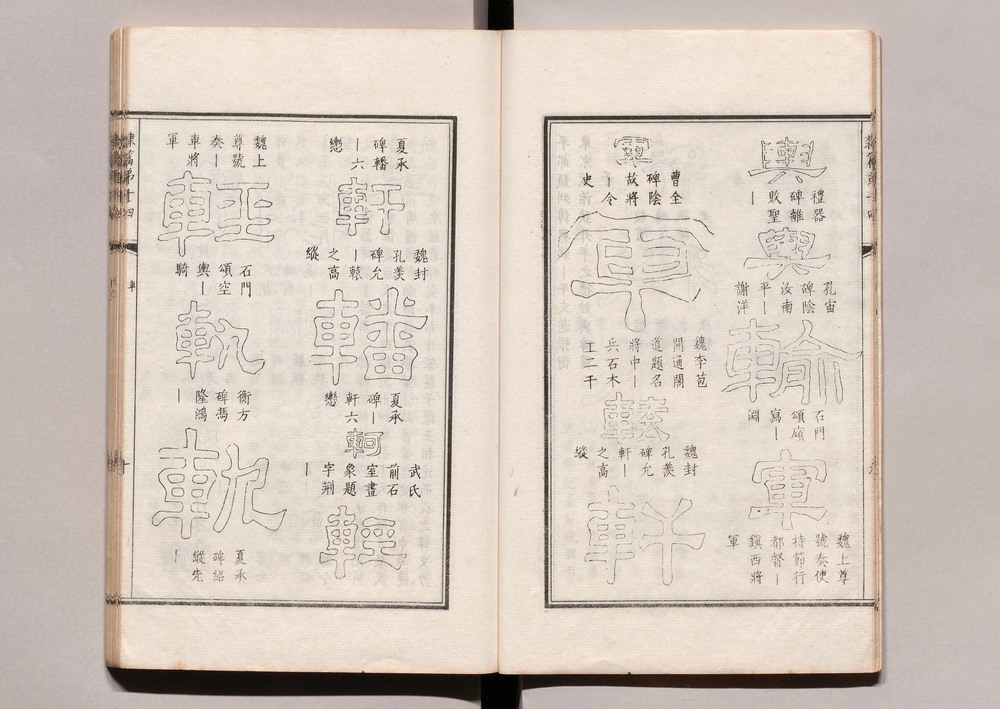 輿
禮器
碑離
敗聖
｜
輿
孔宙
碑陰
汝南
平｜
謝洋
輸
石門
頌顄
寫｜
淵
軍
魏上尊
號奏使
持節行
都督｜
鎮西將
軍
軍
曹全
碑陰
故將
｜令
史
軍
魏李苞
開通閣
道題名
將中｜
兵石木
工二千
轅
魏封
孔羨
碑允
軒｜
之高
縱
軒
夏承
碑轓
｜六
轡
軒
魏封
孔羨
碑允
｜轅
之高
縱
轓
夏承
碑｜
軒六
轡
軻
武氏
前石
室畫
象題
字荆
｜
輕
魏上
尊號
奏｜
車將
軍
輕
石門
頌空
輿｜
騎
軌
衡方
碑馮
隆鴻
｜
軌
夏承
碑紹
縱先
｜
隸篇第十四
車